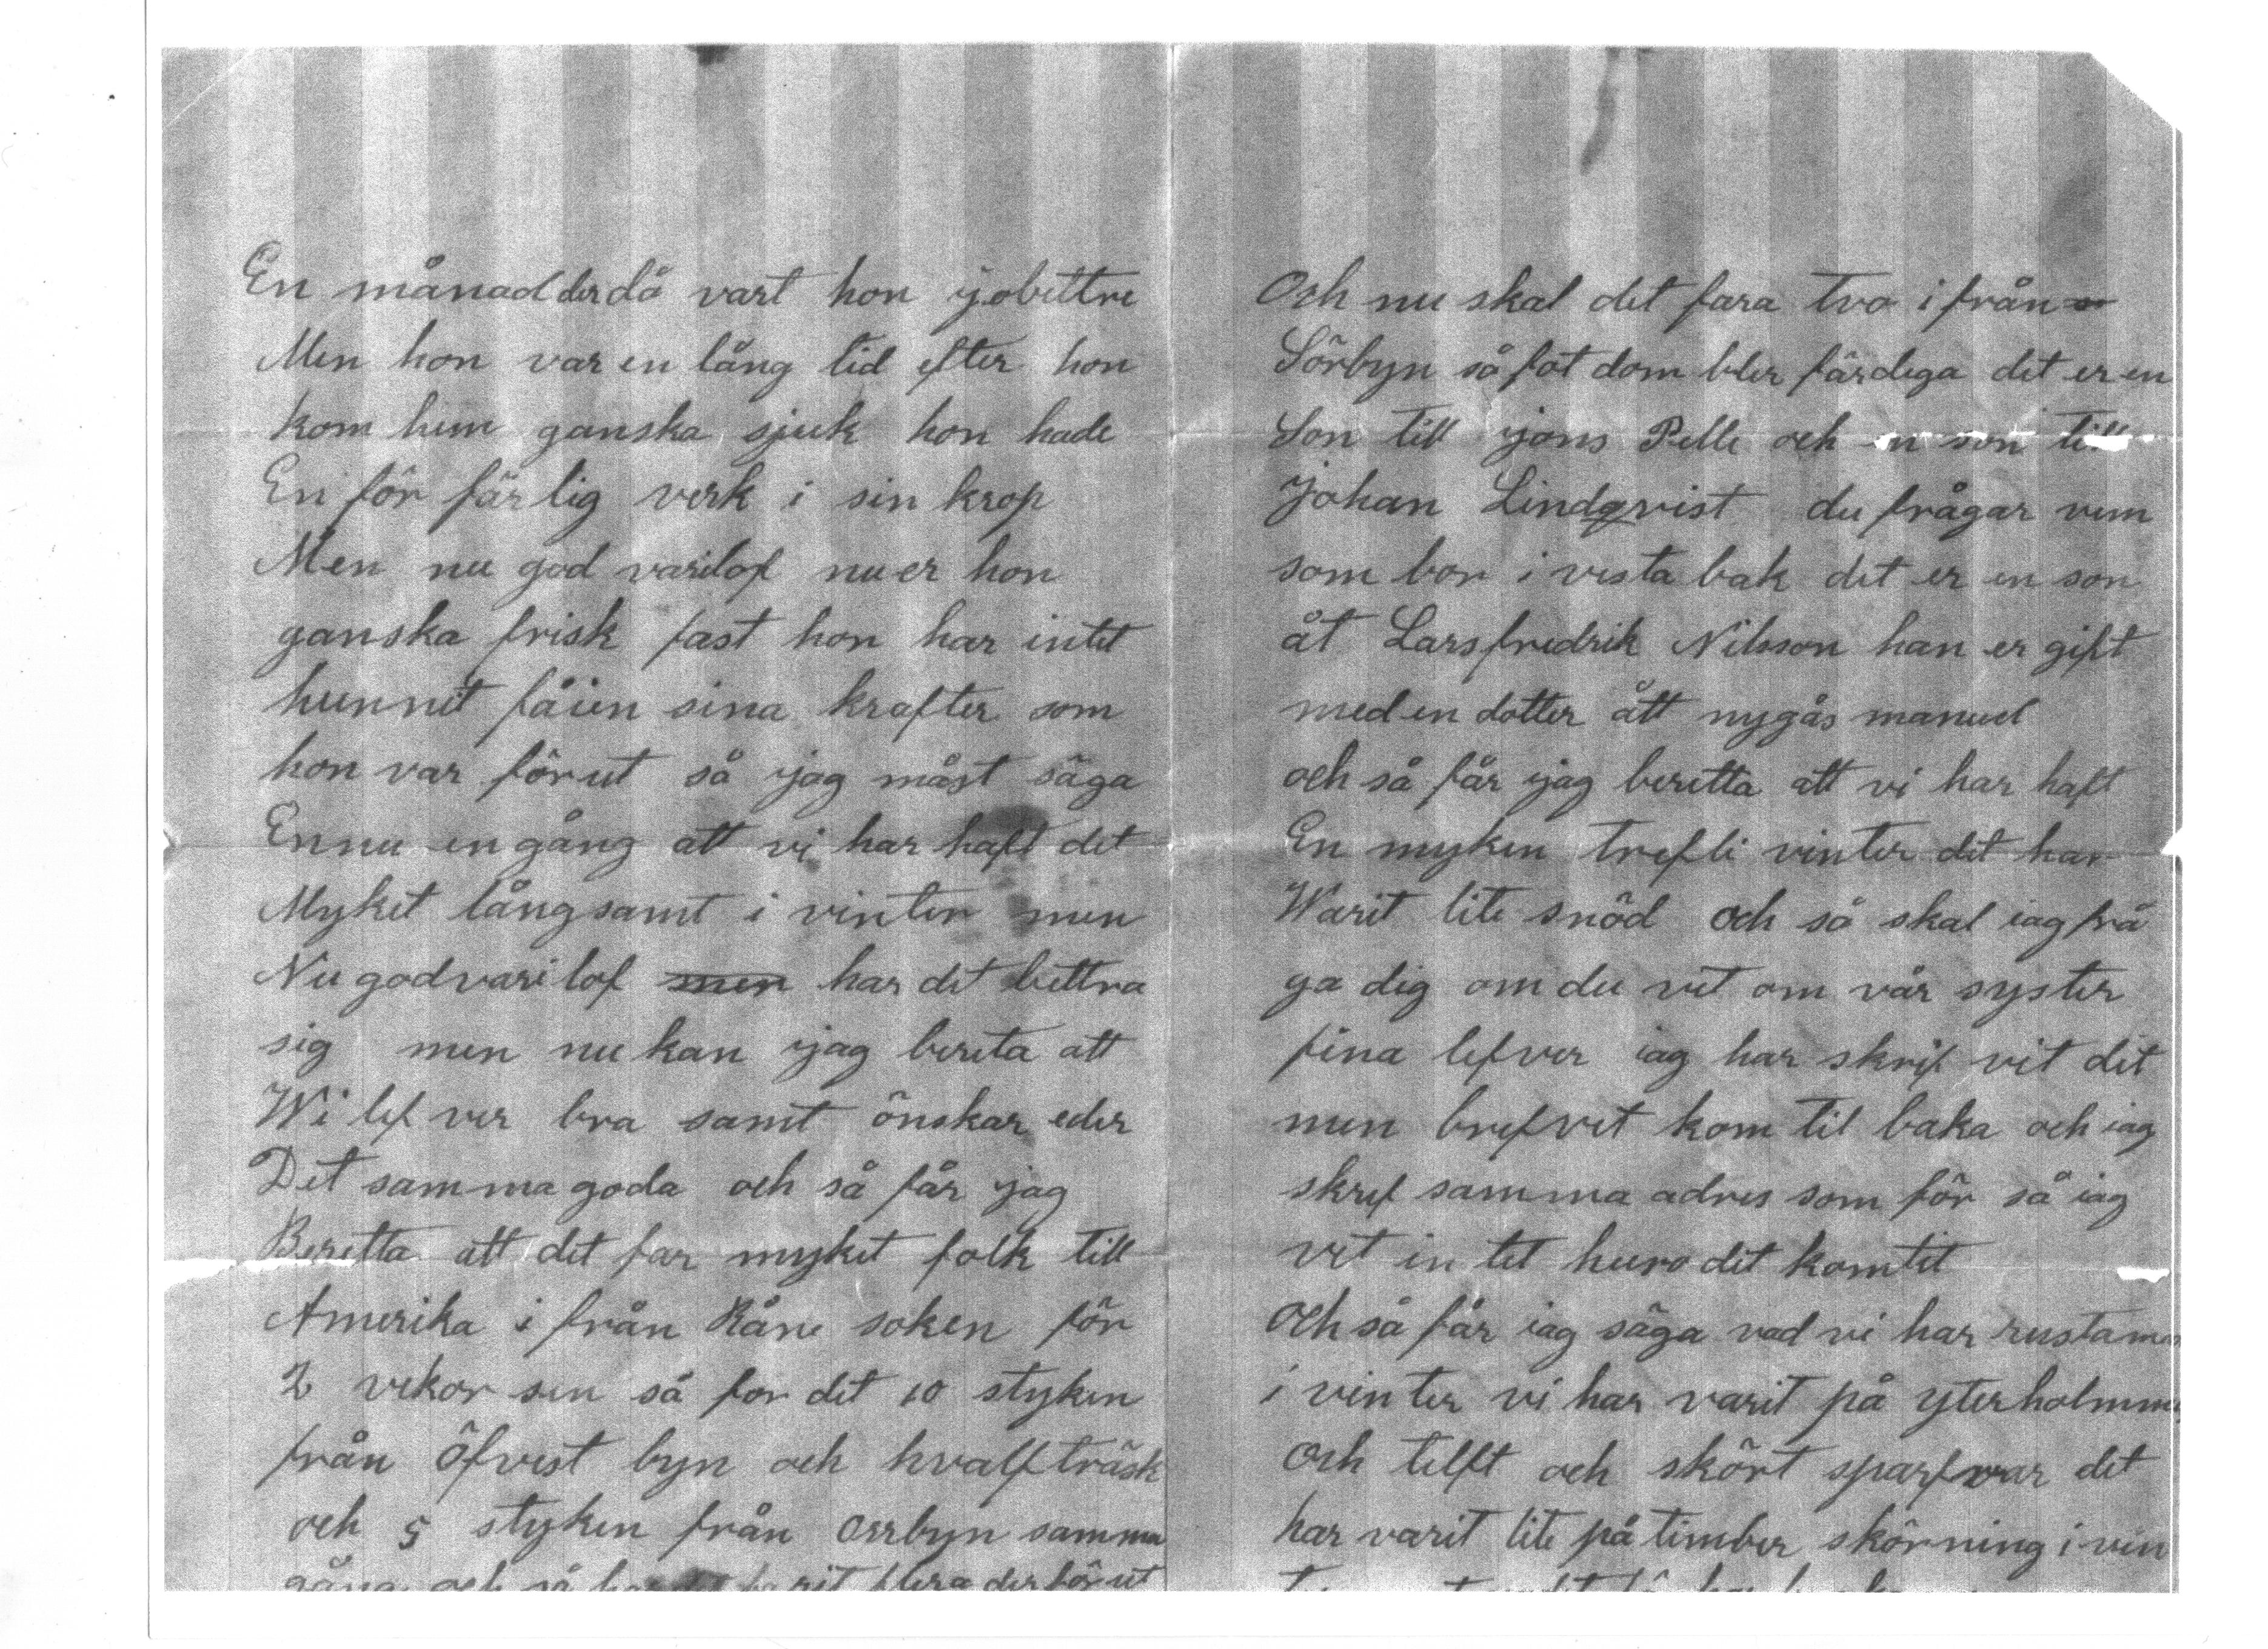 En månad der då vart hon jobettre
Men hon var en lång tid efter hon
kom hem ganska sjuk hon hade
En för färlig verk i sin krop
Men nu god varilof nu er hon
ganska frisk fast hon har intet
hunnit fåien sina krafter som
hon var förut så jag måst säga
Ennu en gång att vi har haft det
Myket långsamt i vinter men
Nu godvarilof men har det bettra
sig men nu kan jag bereta att
Wi lefver bra samt önskar eder
Det samma goda och så får jag
Beretta att det far myket folk till
Amerika i från Råne soken för
2 vekor sen så for det 10 styken
från Öfvest byn och hvalfträsk
och 5 styken från Orrbyn samma
gång och så har det farit flera der förut
Och nu skal det fara tvo i från
Sörbyn så fot dom bler färdega det er en
Son till jons Pelle och en son till
johan Lindqvist du frågar vem
som bor i vesta bak det er en son
åt Larsfredrik Nilsson han er gift
med en dotter ått nygås manuel
och så får jag beretta att vi har haft
En myken trefli vinter det har
Warit lite snöd och så skal iag frå
ga dig om du vet om vår syster
fina lefver iag har skrif vit dit
men brefvet kom til baka och iag
skref samma adres som för så iag
vet in tet huro det komtit
Och så får iag säga vad vi har rusta me
i vinter vi har varit på yterholmm
Och telft och skört sparfvar det
har varit lite på timber skörning i vin